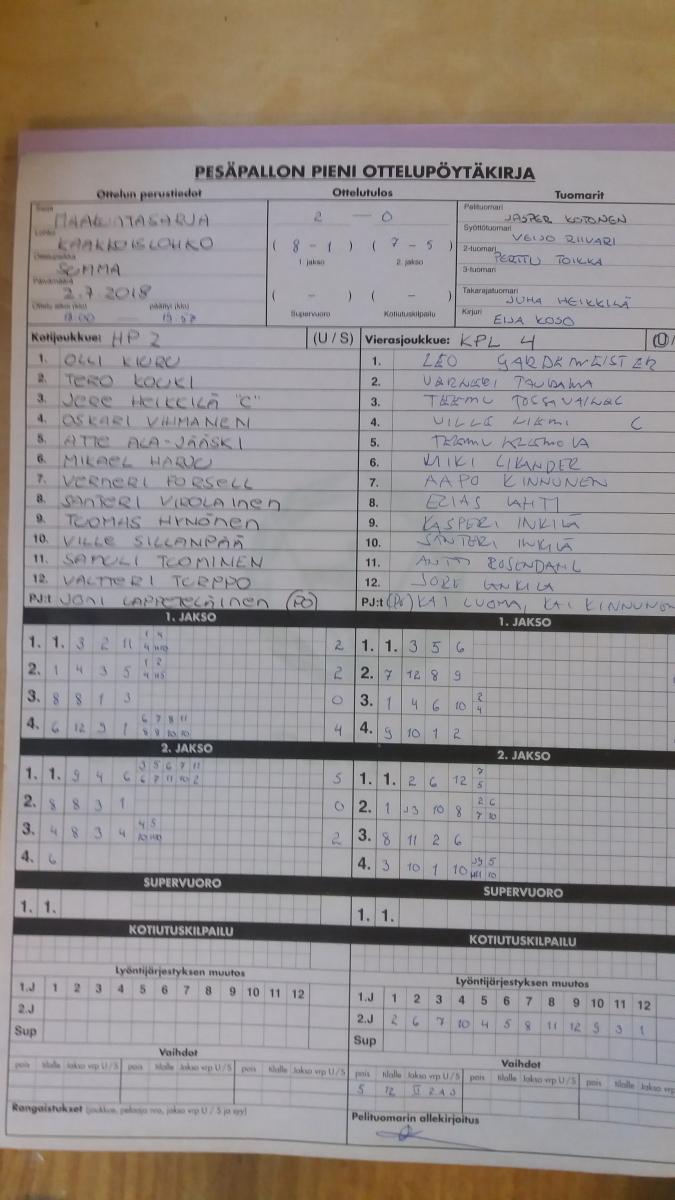 PESÄPALLON PIENI OTTELUPÖYTÄKIRJA
Ottelun perustiedot Ottelutulos Tuomarit
Sarja MAAKUNTASARJA
Lohko KAAKKOISLOHKO
Ottelupaikka SUMMA
Päivämäärä 2.7.2018
Ottelu alkoi (klo) 18.00 päättyi (klo)
2 — 0
( 8 - 1 ) ( 7 - 5 )
1. jakso 2. jakso
( - ) ( - )
Supervuoro Kotiutuskilpailu
Pelituomari JASPER KOTONEN
Syöttötuomari VEIJO RIIVARI
2-tuomari PERTTU TOIKKA
3-tuomari
Takarajatuomari JUHA HEIKKILÄ
Kirjuri EIJA KOSO
Kotijoukkue: HP 2 (U / S)
1. OLLI KIURU
2. TERO KOUKI
3. JERE HEIKKILÄ "C"
4. OSKARI VIHMANEN
5. ATTE ALA-JÄÄSKI
6. MIKAEL
7. VERNERI FORSELL
8. SANTERI VIROLAINEN
9. TUOMAS HYNÖNEN
10. VILLE SILLANPÄÄ
11. SAMULI TUOMINEN
12. VALTTERI TURPPO
PJ:t JONI LAPPETELÄINEN (PO)
Vierasjoukkue: KPL 4 (U/
1. LEO GARDEMEISTER
2. VERNERI
3. TEEMU
4. VILLE C
5. TEEMU
6. MIKI LIKANDER
7. AAPO KINNUNEN
8. ELIAS LAHTI
9. KASPERI INKILÄ
10. SANTERI INKILÄ
11. ROSENDAHL
12.
PJ:t (PO) KAI LUOMA, KAI KINNUNEN
1. JAKSO
1. 1. 3 2 11 2
2. 1 4 3 5 2
3. 8 8 1 3 0
4. 6 12 9 1 6 7 8 11 8 8 10 10 4
2. JAKSO
1. 1. 9 4 6 3 5 6 7 11 6 7 11 10 2 5
2. 8 8 3 1 0
3. 4 8 3 4 2
4. 6
SUPERVUORO
1. 1.
KOTIUTUSKILPAILU
Lyöntijärjestyksen muutos
1.J 1 2 3 4 5 6 7 8 9 10 11 12
2.J
Sup
Vaihdot
pois tilalle Jakso vrp U / S pois tilalle Jakso vrp U / S pois tilalle Jakso vrp U / S
Rangaistukset (joukkue, pelaaja nro, jakso vrp U / S ja syy)
1. JAKSO
1. 1. 3 5 6
2. 7 12 8 9
3. 1 4 6 10 2 4
4. 9 10 1 2
2. JAKSO
1. 1. 2 6 12 7 5
2. 1 10 8 2 6 7 10
3. 8 11 2 6
4. 3 10 1 10
SUPERVUORO
1. 1.
KOTIUTUSKILPAILU
Lyöntijärjestyksen muutos
1.J 1 2 3 4 5 6 7 8 9 10 11 12
2.J 2 6 7 10 4 5 8 11 12 9 3 1
Sup
Vaihdot
pois tilalle Jakso vrp U / S pois tilalle Jakso vrp U / S pois tilalle Jakso vrp
5 12 II
Pelituomarin allekirjoitus